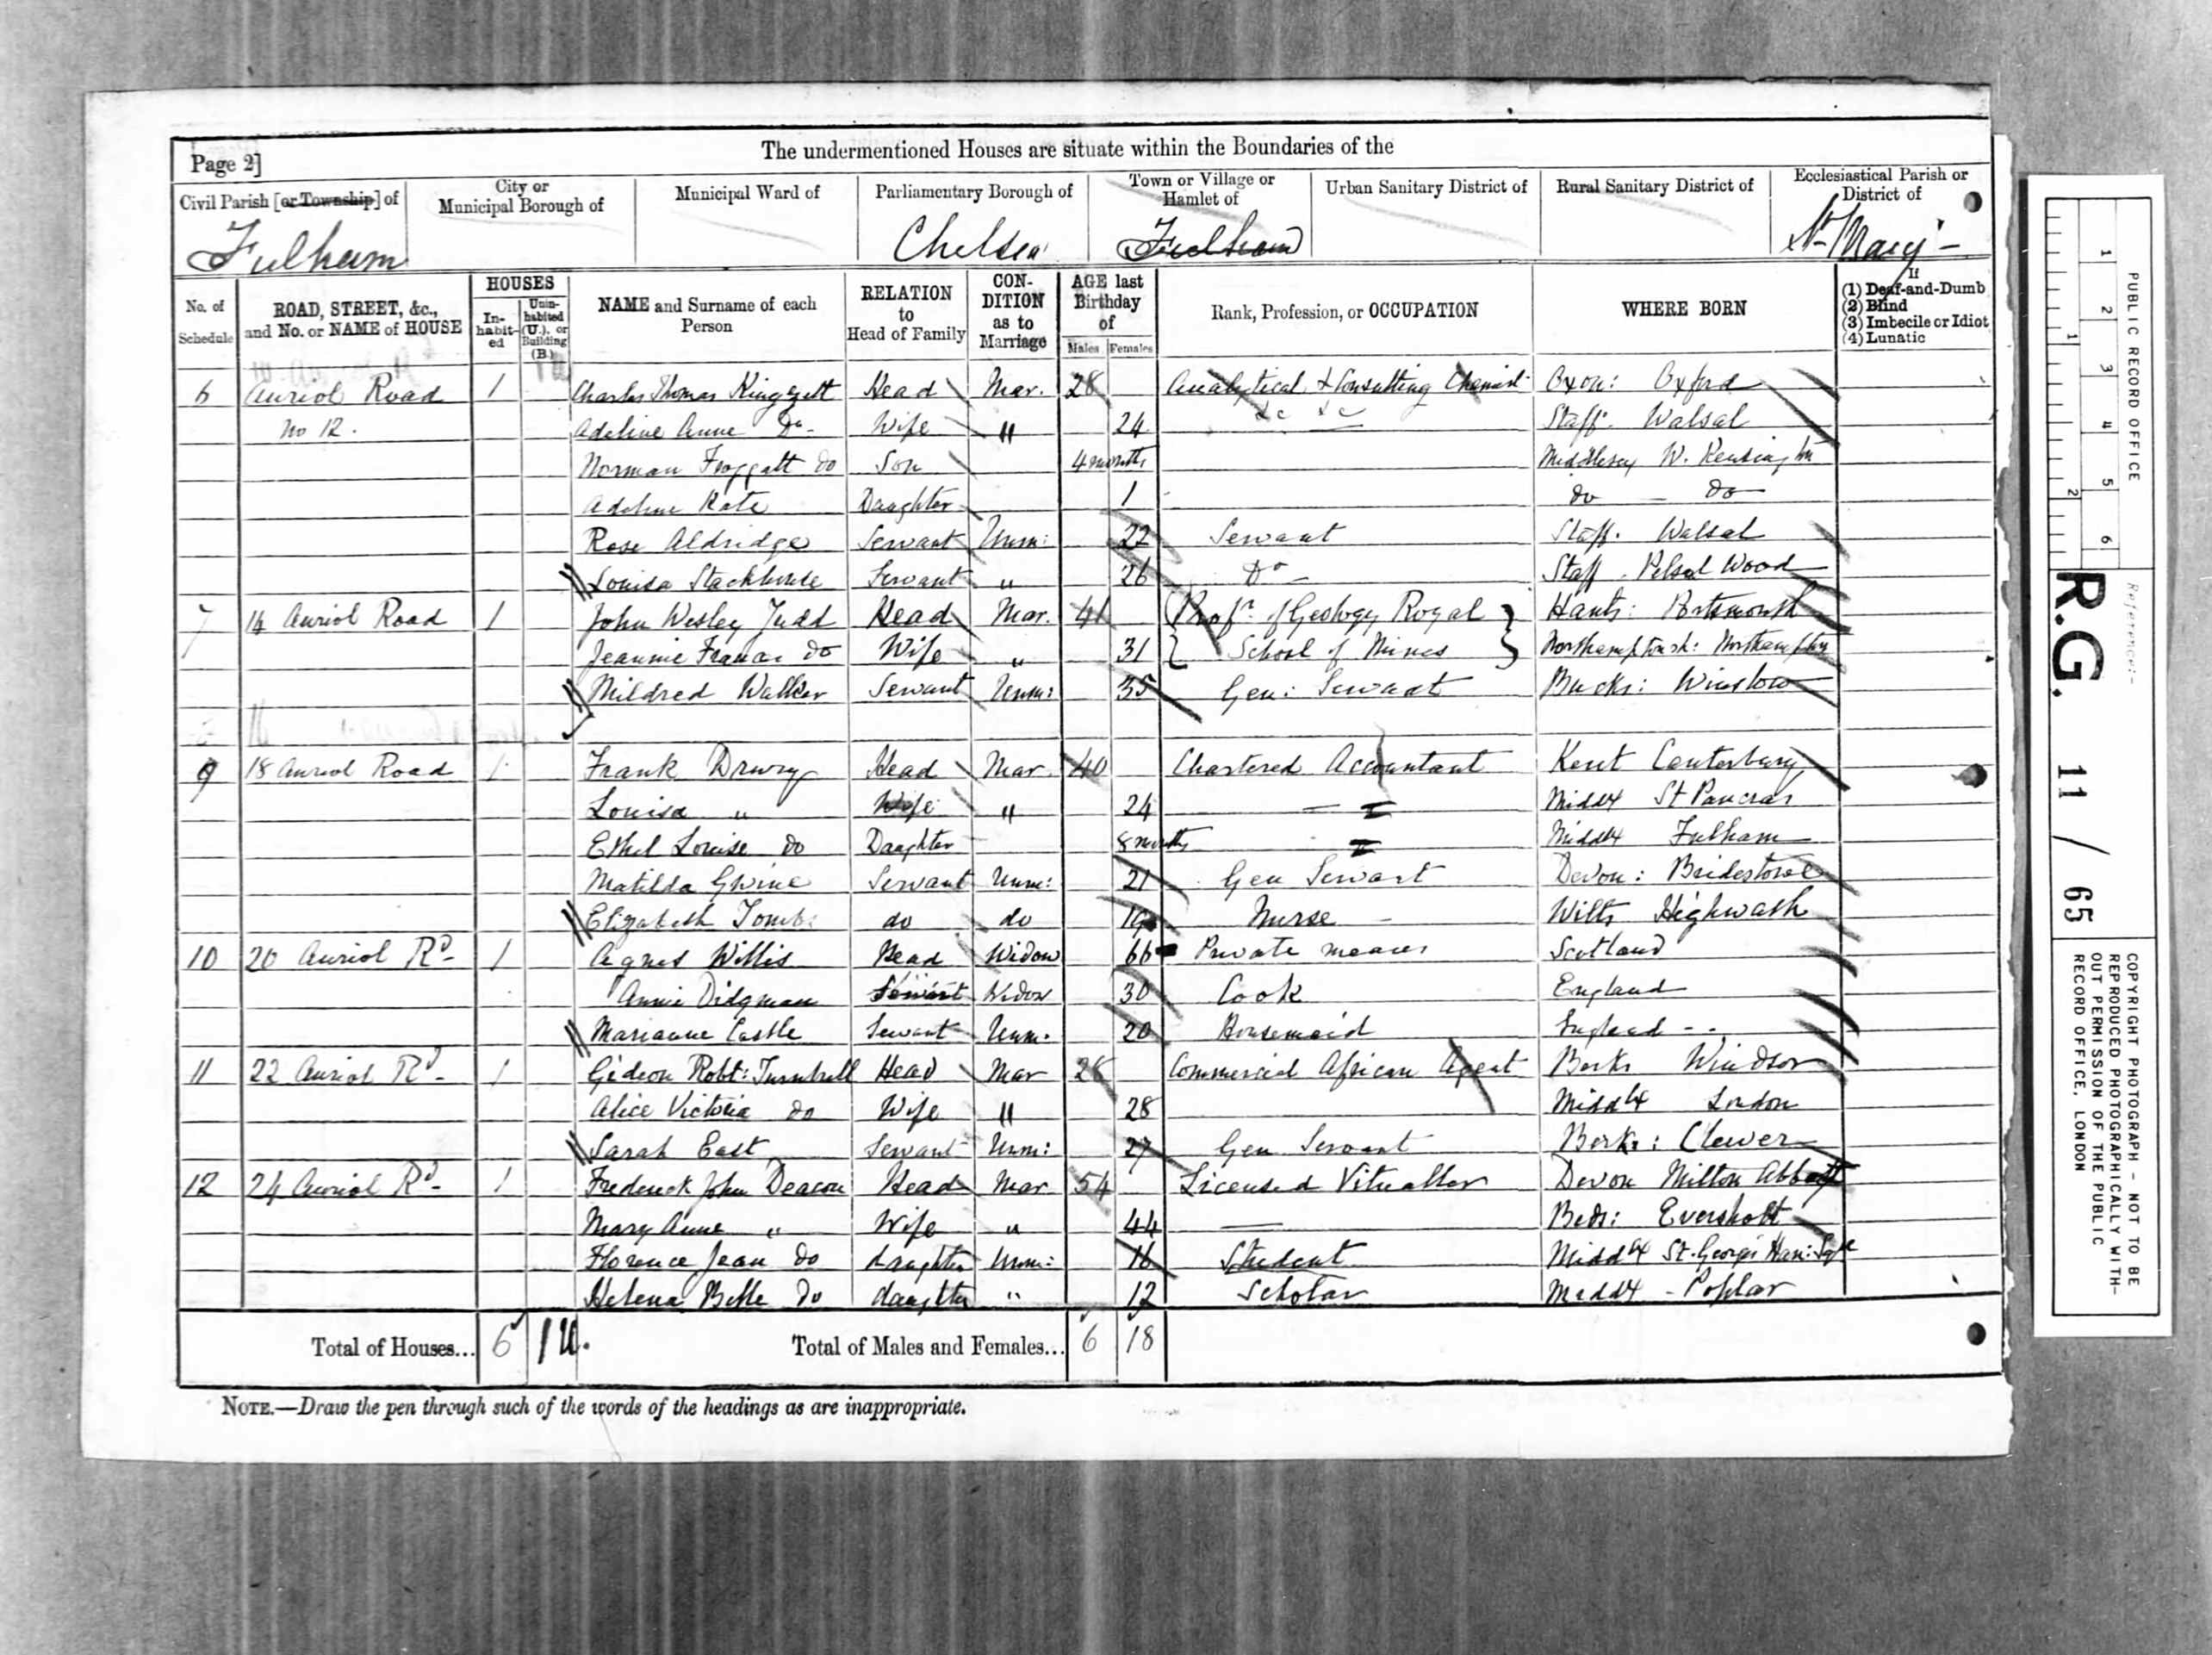 Page 2]
The undermentioned Houses are situate within the Boundaries of the
Civil Parish [or Township] of
City or Municipal Borough of
Municipal Ward of
Parliamentary Borough of
Town or Village or Hamlet of
Urban Sanitary District of
Rural Sanitary District of
Ecclesiastical Parish or District of
Fulham Chelsea Fulham St Mary's
No. of Schedule
ROAD, STREET, &c., and No. or NAME of HOUSE
HOUSES
In-habit-ed
Unin-habited (U.), or Building (B.)
NAME and Surname of each Person
RELATION to Head of Family
CON-DITION as to Marriage
AGE last Birthday of
Males Females
Rank, Profession, or OCCUPATION
WHERE BORN
If
(1) Deaf-and-Dumb
(2) Blind
(3) Imbecile or Idiot
(4) Lunatic
6 Auriol Road 1 Charles Thomas Kingzett Head Mar. 28 Analytical & Consulting Chemist Oxon: Oxford
No 12. Adeline Anne Do Wife " 24 &c &c Staff. Walsal
Norman Froggatt do Son 4 months Middlesex W. Kensington
Adeline Kate Daughter 1 do do
Rose Aldridge Servant Unm: 22 Servant Staff. Walsal
Louisa Stackhouse Servant " 26 Do Staff. Pelsal Wood
7 14 Auriol Road 1 John Wesley Judd Head Mar. 41 Profr. of Geology Royal Hants: Portsmouth
Jeannie Frances do Wife " 31 School of Mines Northamptonsh: Northampton
Mildred Walker Servant Unm: 35 Gen: Servant Bucks: Winslow
9 18 Auriol Road 1 Frank Drury Head Mar. 40 Chartered Accountant Kent Canterbury
Louisa " Wife " 24 Middx St Pancras
Ethel Louise do Daughter 8 months Middx Fulham
Matilda Gwine Servant Unm: 21 Gen Servant Devon: Bridestowe
Elizabeth Tombs do do 19 Nurse Wilts Highwath
10 20 Auriol Rd 1 Agnes Willis Head Widow 66 Private means Scotland
Annie Didgman Servant Widow 30 Cook England
Marianne Castle Servant Unm. 20 Housemaid England
11 22 Auriol Rd 1 Gideon Robt: Turnbull Head Mar 28 Commercial African Agent Berks Windsor
Alice Victoria do Wife " 28 Middx London
Sarah East Servant Unm: 27 Gen Servant Berks: Clewer
12 24 Auriol Rd 1 Frederick John Deacon Head Mar 54 Licensed Vitualler Devon Milton Abbott
Mary Anne " Wife " 44 Beds: Eversholt
Florence Jean do daughter Unm: 16 Student Middx St. Georges Han: Sqre
Helena Belle do daughter " 12 Scholar Middx - Poplar
Total of Houses... 6 1 U. Total of Males and Females... 6 18
NOTE.—Draw the pen through such of the words of the headings as are inappropriate.
PUBLIC RECORD OFFICE
1 2 3 4 5 6
1 2
Reference:-
R.G. 11 / 65
COPYRIGHT PHOTOGRAPH - NOT TO BE
REPRODUCED PHOTOGRAPHICALLY WITH-
OUT PERMISSION OF THE PUBLIC
RECORD OFFICE, LONDON